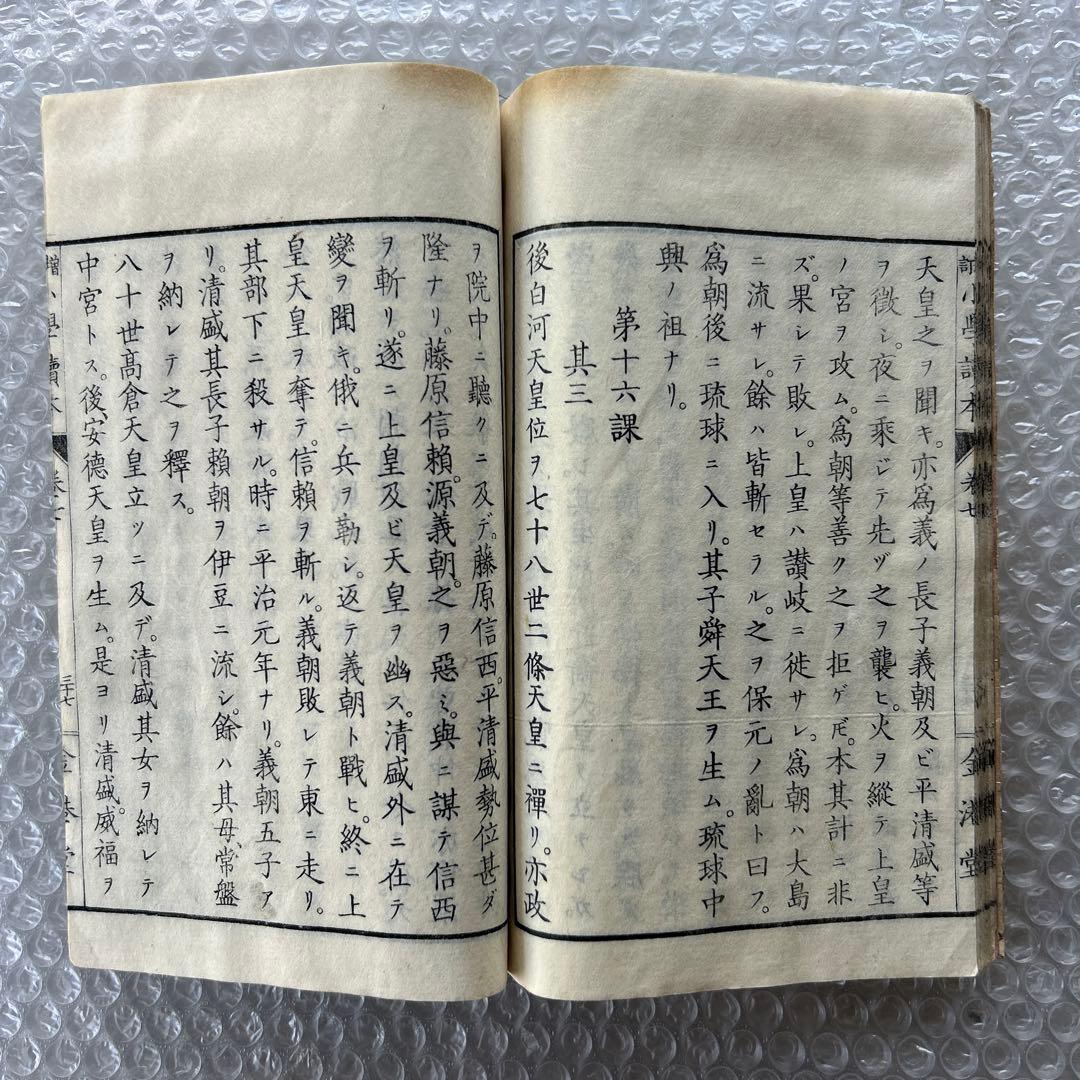 天皇之ヲ聞キ。亦爲義ノ長子義朝及ビ平清盛等
ヲ徴シ。夜ニ乘ジテ先ヅ之ヲ襲ヒ。火ヲ縱テ上皇
ノ宮ヲ攻ム。爲朝等善ク之ヲ拒ゲ𪜈。本其計ニ非
ズ。果シテ敗レ。上皇ハ讃岐ニ徙サレ。爲朝ハ大島
ニ流サレ。餘ハ皆斬セラル。之ヲ保元ノ亂ト曰フ。
爲朝後ニ琉球ニ入リ。其子舜天王ヲ生ム。琉球中
興ノ祖ナリ。
第十六課
其三
後白河天皇位ヲ七十八世二條天皇ニ禪リ。亦政
ヲ院中ニ聽クニ及デ。藤原信西。平清盛勢位甚ダ
隆ナリ。藤原信賴。源義朝。之ヲ惡ミ。與ニ謀テ信西
ヲ斬リ。遂ニ上皇及ビ天皇ヲ幽ス。清盛外ニ在テ
變ヲ聞キ。俄ニ兵ヲ勒シ。返テ義朝ト戰ヒ。終ニ上
皇天皇ヲ奪テ。信賴ヲ斬ル。義朝敗レテ東ニ走リ。
其部下ニ殺サル。時ニ平治元年ナリ。義朝五子ア
リ。清盛其長子賴朝ヲ伊豆ニ流シ。餘ハ其母、常盤
ヲ納レテ之ヲ釋ス。
八十世高倉天皇立ツニ及デ。清盛其女ヲ納レテ
中宮トス。後、安德天皇ヲ生ム。是ヨリ清盛威福ヲ
小學讀本 卷七 三十七